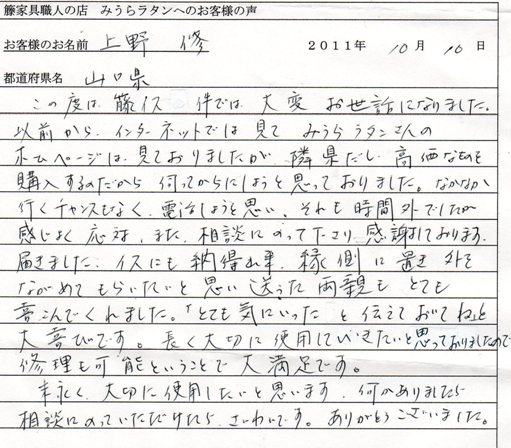 籐家具職人の店　みうらラタンへのお客様の声
お客様のお名前 上野 修　2011年 10月 10日
都道府県名 山口県
この度は、籐イス 件では 大変 お世話になりました。
以前から、インターネットでは見て みうらラタンさんの
ホームページは見ておりましたが 隣県だし、高価なものを
購入するのだから 伺ってからにしようと思っておりました。なかなか
行くチャンスもなく、電話しようと思い、それも時間外でしたが
感じよく応対、また、相談にのって下さり、感謝しております。
届きました、イスにも納得出来、縁側に置き 外を
ながめてもらいたいと思い 送った両親も とても
喜こんでくれました。「とても気にいった」と伝えておいてねと
大喜びです。長く大切に使用していきたいと思っておりましたので
修理も可能ということで大満足です。
末永く、大切に使用したいと思います、何かありましたら
相談にのっていただけたら、さいわいです。ありがとうございました。